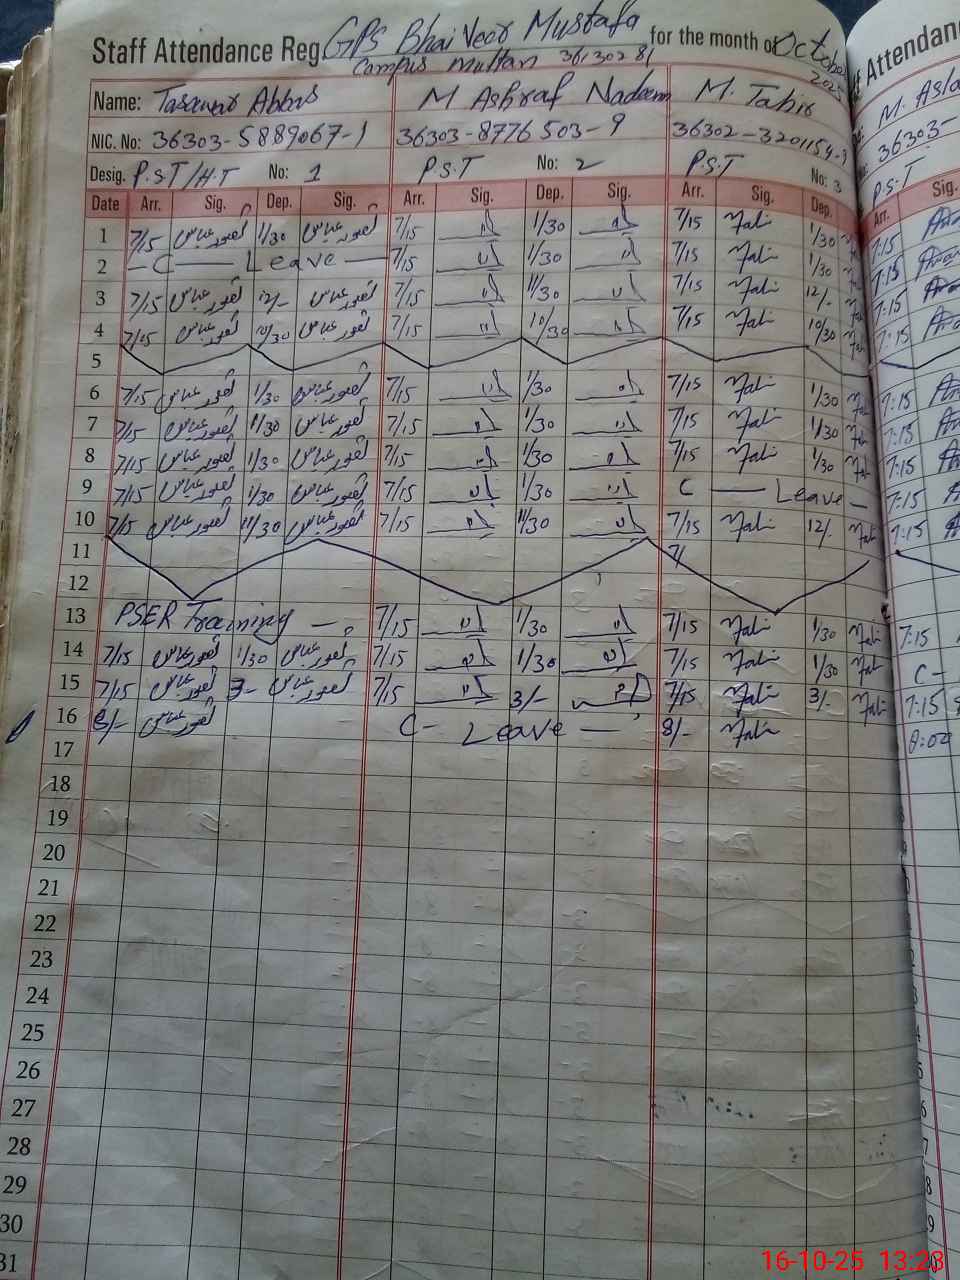 Staff Attendance Reg GPS Bhai Veer Mustafa for the month of October
Campus Multan 36130281 2025
Name: Tasawar Abbas M Ashraf Nadeem M. Tahir
NIC. No: 36303-5889067-1 36303-8776503-9 36302-3201154-9
Desig. P.S.T/H.T No: 1 P.S.T No: 2 P.S.T No: 3
Date Arr. Sig. Dep. Sig. Arr. Sig. Dep. Sig. Arr. Sig. Dep.
1 7/15 تصور عباس 1/30 تصور عباس 7/15 1/30 7/15 1/30 7:15
2 - C - Leave - 7/15 11/30 7/15 1/30 7:15
3 7/15 تصور عباس 12/- تصور عباس 7/15 11/30 7/15 12/- 7:15
4 7/15 تصور عباس 10/30 تصور عباس 7/15 10/30 7/15 10/30 7:15
5
6 7/15 تصور عباس 1/30 تصور عباس 7/15 1/30 7/15 1/30 7:15
7 7/15 تصور عباس 1/30 تصور عباس 7/15 1/30 7/15 1/30 7:15
8 7/15 تصور عباس 1/30 تصور عباس 7/15 1/30 7/15 1/30 7:15
9 7/15 تصور عباس 1/30 تصور عباس 7/15 1/30 C - Leave - 7:15
10 7/15 تصور عباس 11/30 تصور عباس 7/15 11/30 7/15 12/- 7:15
11 7/
12
13 PSER Training - 7/15 1/30 7/15 1/30 7:15
14 7/15 تصور عباس 1/30 تصور عباس 7/15 1/30 7/15 1/30 C-
15 7/15 تصور عباس 3- تصور عباس 7/15 3/- 7/15 3/- 7:15
16 8/- تصور عباس C- Leave - 8/- 8:00
17
18
19
20
21
22
23
24
25
26
27
28
29
30
31
Attendan
M. Asla
36303-
P.S.T
Arr. Sig.
16-10-25 13:23